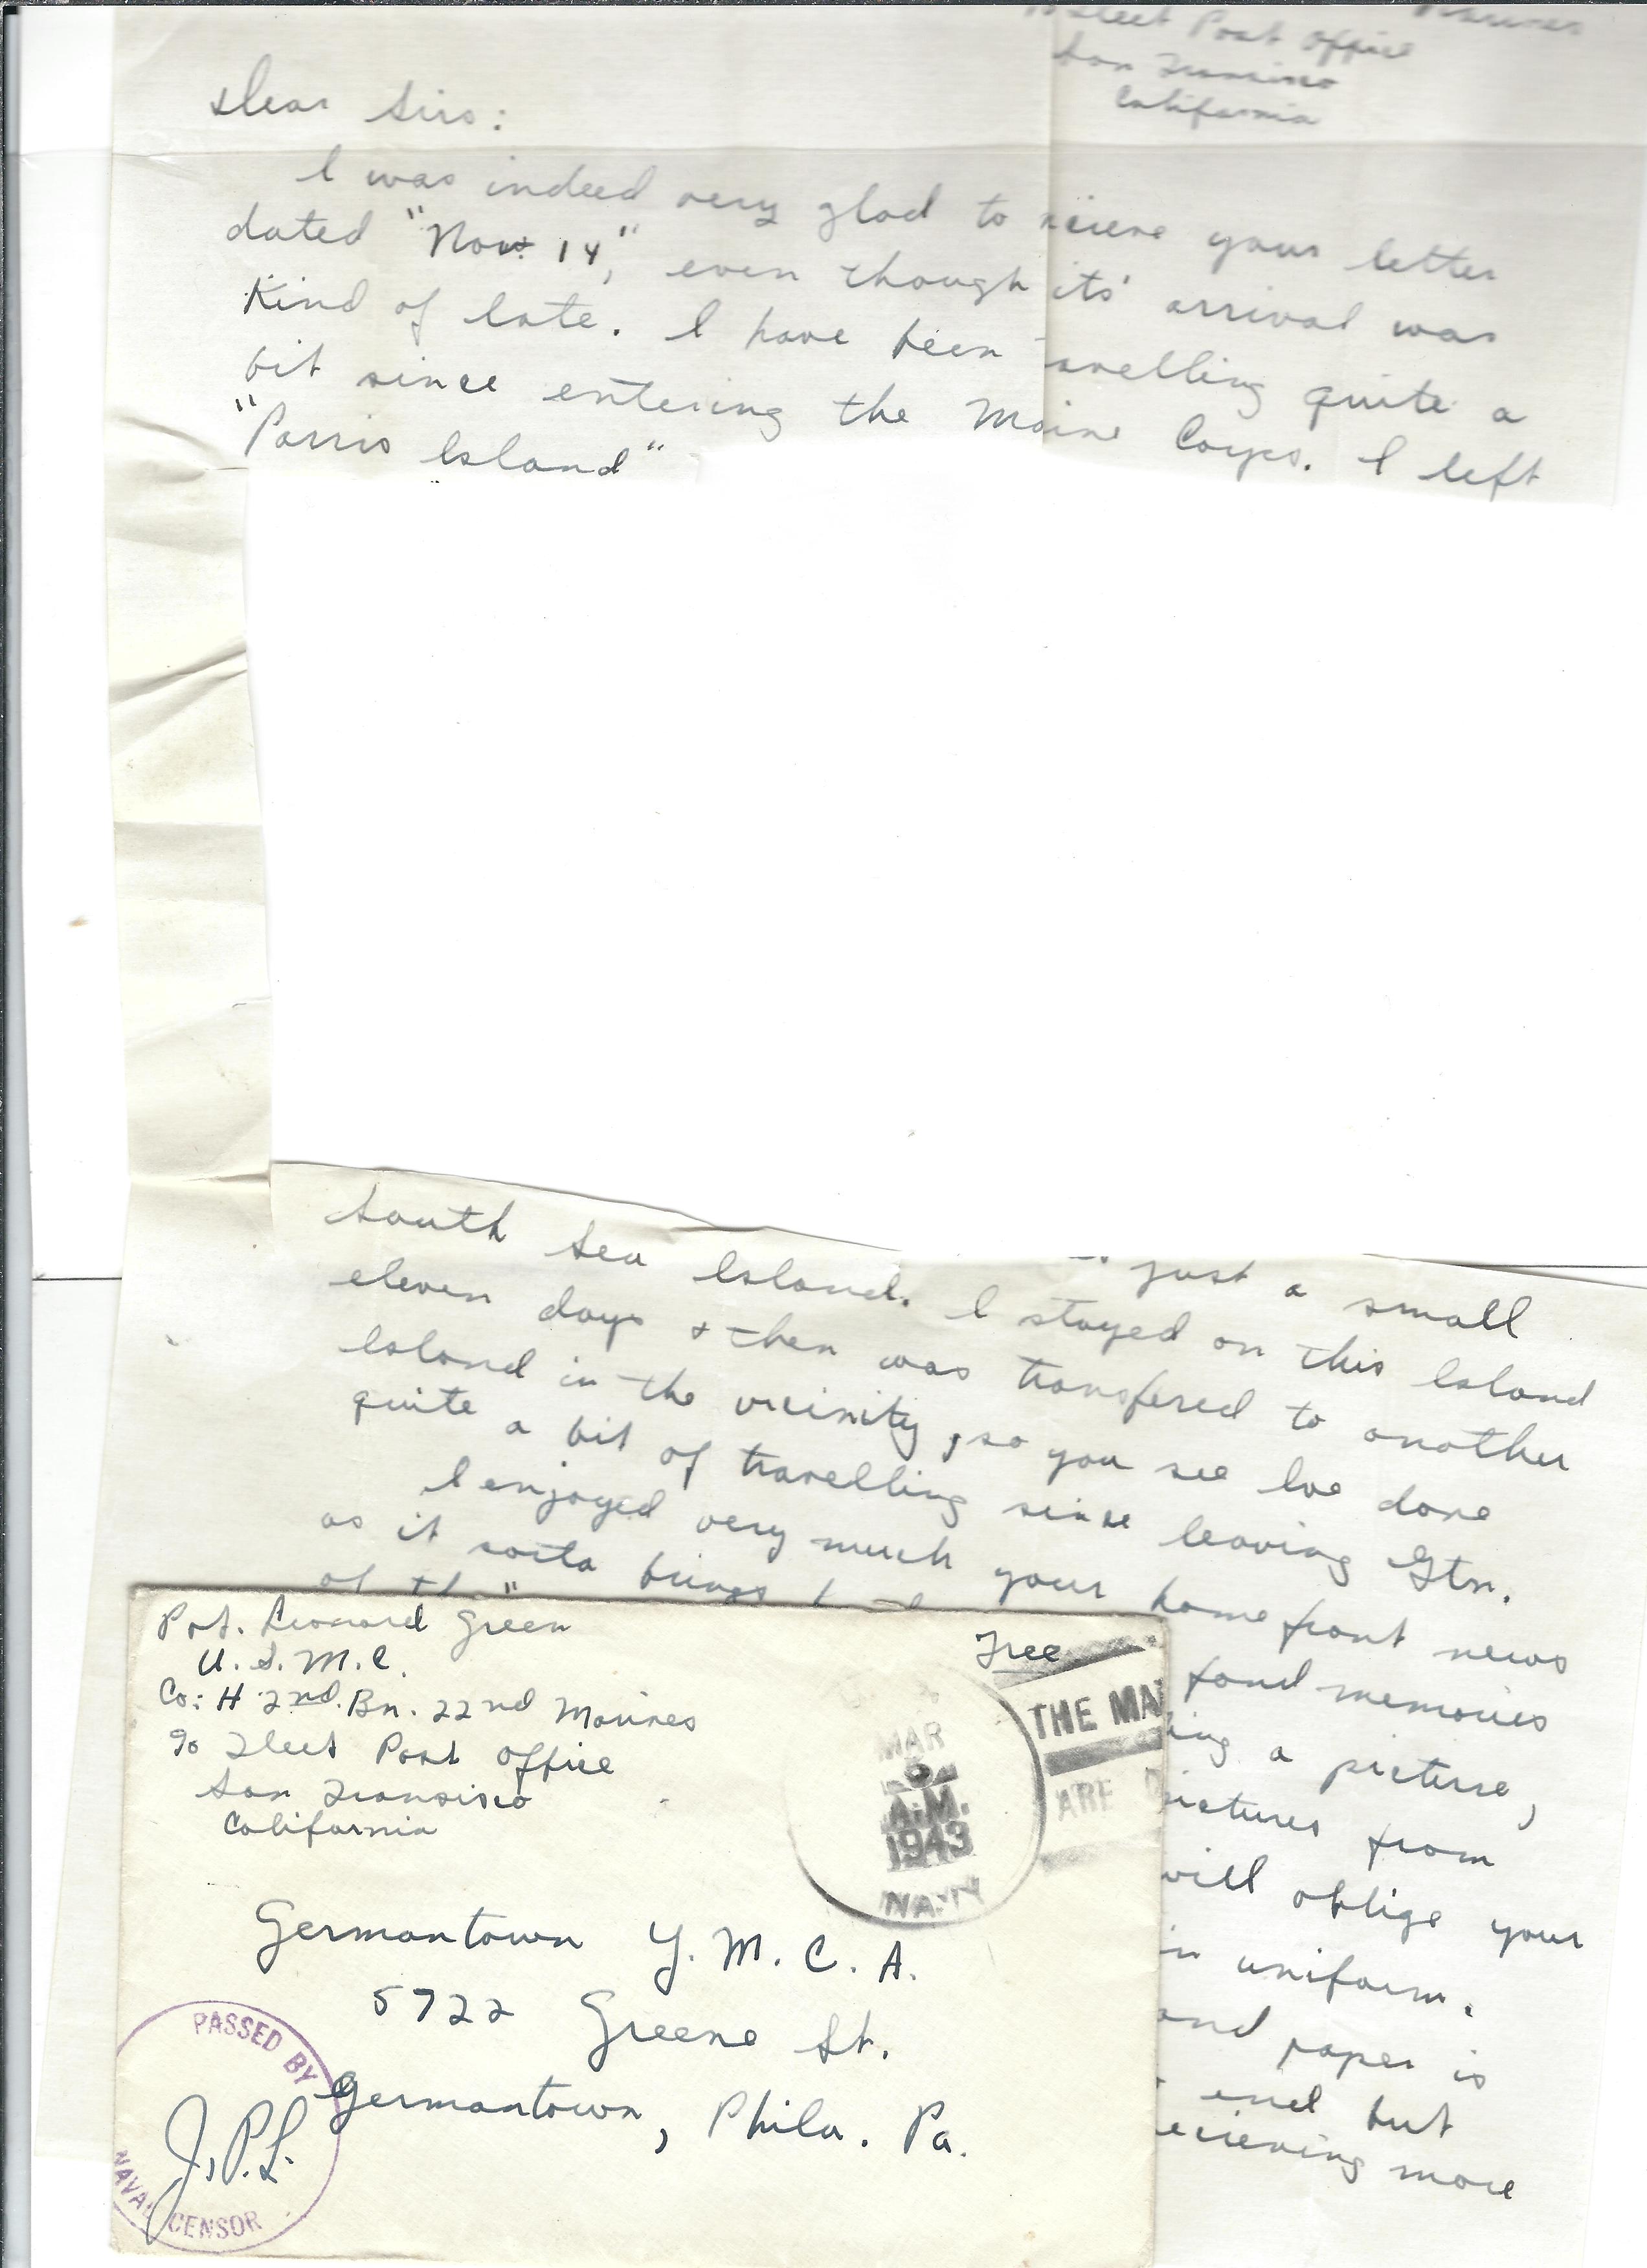 Fleet Post Office
San Fransisco
California
Dear Sirs:
I was indeed very glad to recieve your letter
dated "Nov. 14", even though its' arrival was
Kind of late. I have been travelling quite a
bit since entering the Marine Corps. I left
"Parris Island"
just a small
South Sea Island. I stayed on this Island
eleven days + then was transfered to another
Island in the vicinity, so you see Ive done
quite a bit of travelling since leaving Gtn.
I enjoyed very much your home front news
as it sorta brings
fond memories
a picture,
pictures from
will oblige your
in uniform.
and paper is
end but
recieving more
Pvt. Leonard Green
U.S.M.C.
Co: H 2nd. Bn. 22nd Marines
℅ Fleet Post Office
San Fransisco
California
Free
MAR
5
A.M.
1943
NAVY
THE MA
ARE
Germantown Y.M.C.A.
5722 Greene St.
Germantown, Phila. Pa.
PASSED BY
J.P.L.
NAVAL CENSOR